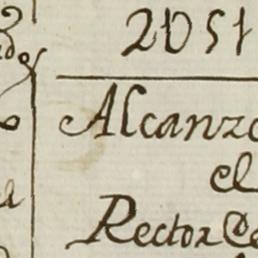 2051
Alcanzo
el
Rector De